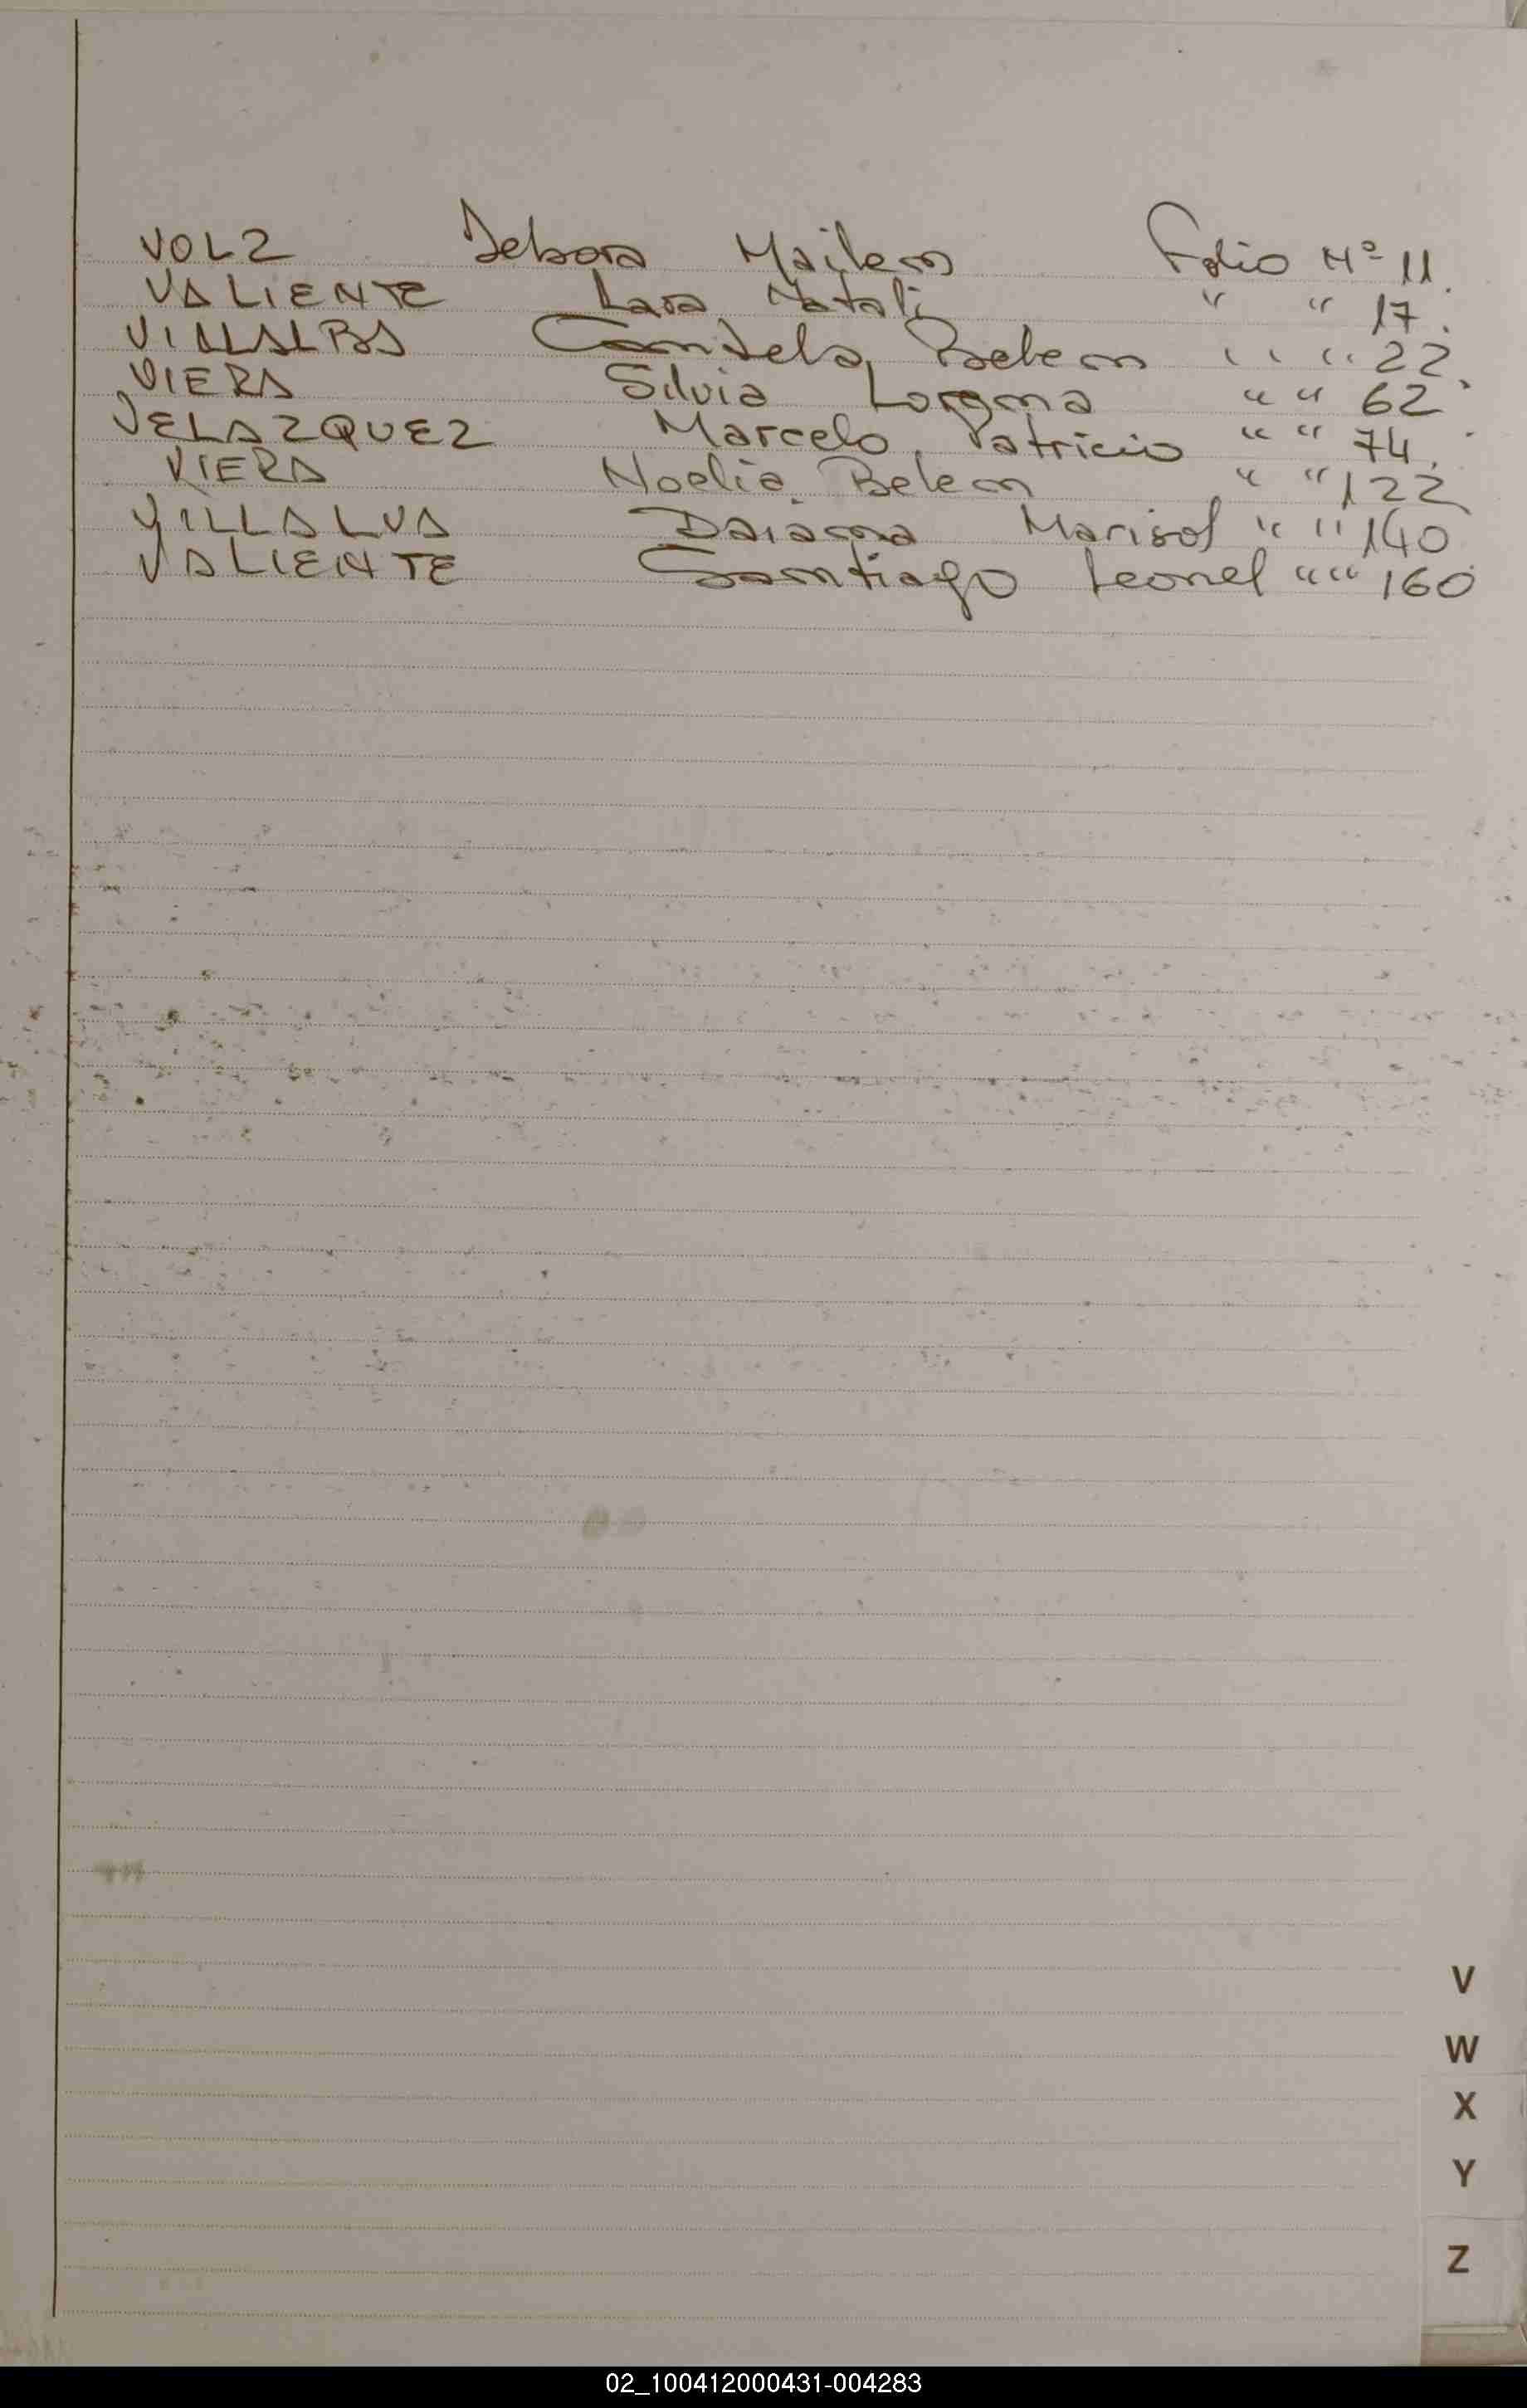 VOLZ Debora Mailen Folio Nº 11.
VALIENTE Lara Natali " " 17.
VILLALBA Candela Belen " " 22.
VIERA Silvia Lorena " " 62
VELAZQUEZ Marcelo Patricio " " 74.
VIERA Noelia Belen " " 122
VILLALVA Daiana Marisol " " 140
VALIENTE Santiago Leonel " " 160
V
W
X
Y
Z
02_100412000431-004283